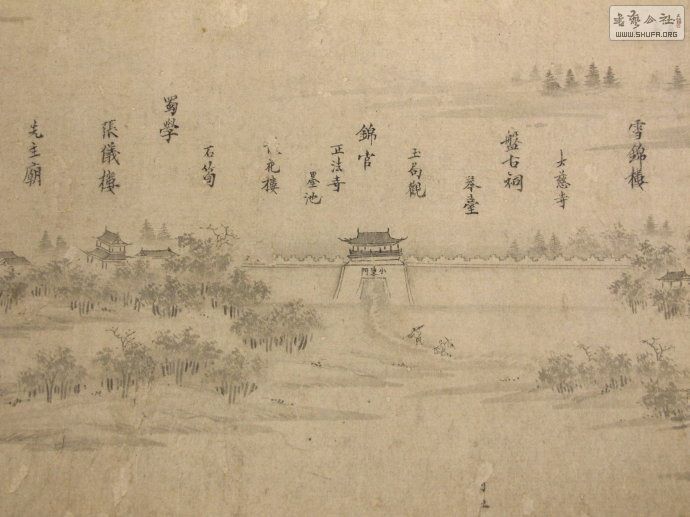 雪錦樓
大慈寺
盤古祠
琴臺
玉局觀
錦官
正法寺
墨池
花樓
石筍
蜀學
張儀樓
先主廟
小東門
書藝公社
WWW.SHUFA.ORG